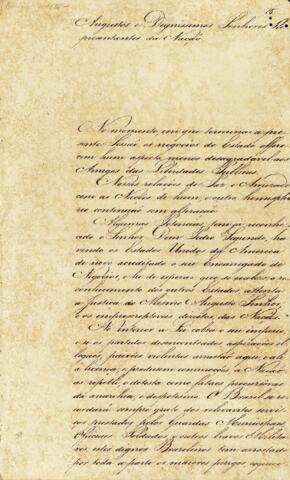 15
Augustos e Dignissimos Senhores Re-
prezentantes da Nação.
No momento, em que terminaes a pre-
zente Sessão os negocios do Estado offere-
cem hum aspecto menos desagradavel aos
Amigos das Liberdades Publicas.
Nossas relações de Paz, e Amizade
com as Nações de hum, e outro hemisphe-
rio continuão sem alteração.
Algumas Potencias tem já reconhe-
cido o Senhor Dom Pedro Segundo, ha-
vendo os Estados Unidos da America
de novo acreditado o seu Encarregado de
Negocios, e he de esperar que se realize o re-
conhecimento dos outros Estados, attenta
a Justiça do Mesmo Augusto Senhor,
e os imprescriptiveis direitos das Nações.
No interior a Lei cobra o seu imperio,
e se os partidos desencontrados aspirações
paixões violentas arrastão aqui, e alli
a licença, e produzem commoções a Nação
as repelle, e detesta como fataes precursoras
da anarchia, e despotismo. O Brasil se re-
cordará sempre grato dos relevantes servi-
ços prestados pelos Guardas Municipaes,
Officiaes Soldados e outros bravos Milita-
res, estes dignos Brasileiros tem arrostado
por toda a parte os maiores perigos